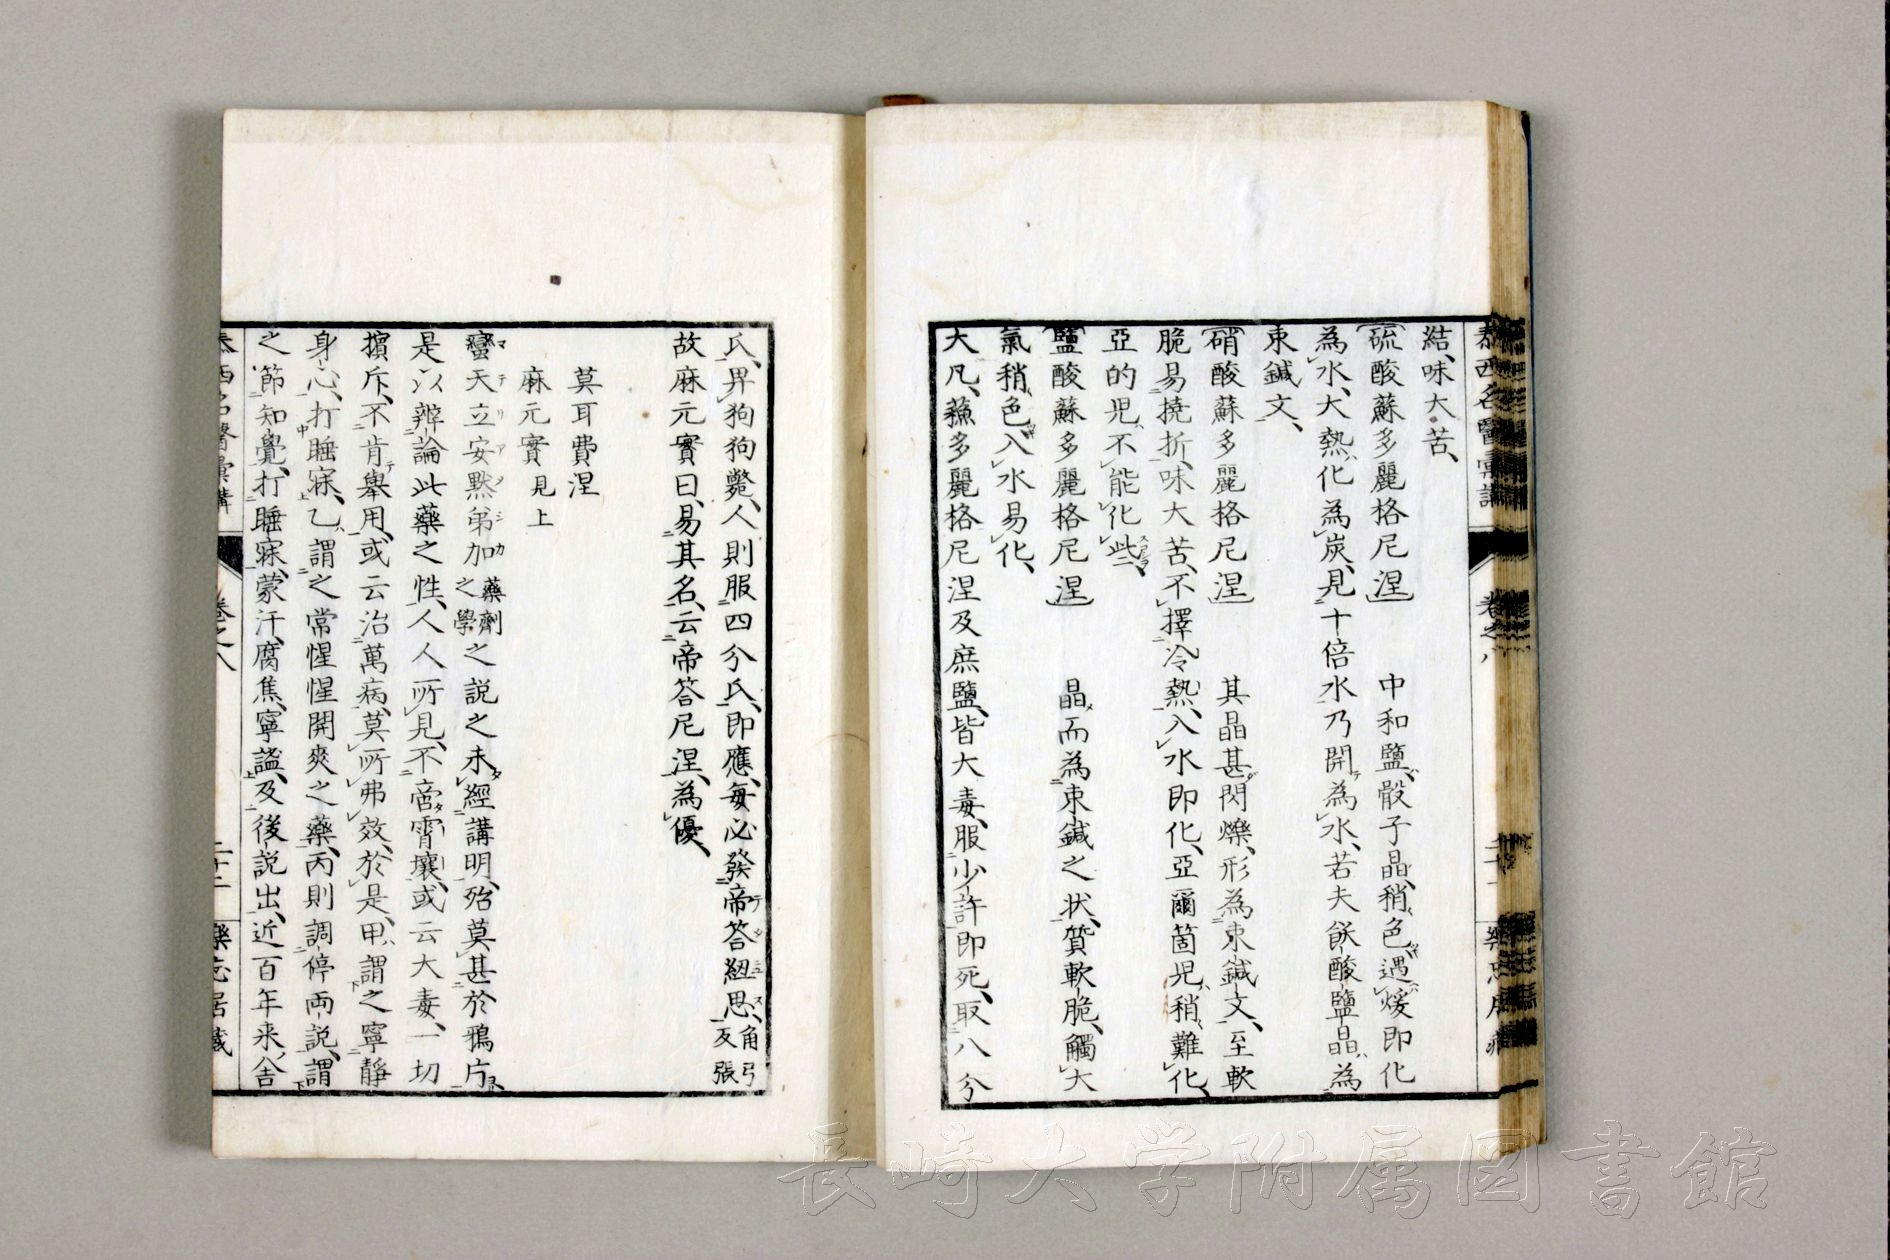 泰西名醫彙講 卷之八 二十一 樂志居藏
結、味大苦、
硫酸蘇多麗格尼涅 中和鹽、骰子晶、稍色、遇煖即化
為水、大熱、化為炭、見十倍水乃開為水、若夫飫酸鹽晶、為
束鍼文、
硝酸蘇多麗格尼涅 其晶甚閃爍、形為束鍼文、至軟
脆易撓折、味大苦、不擇冷熱、入水即化、亞爾箇児、稍難化、
亞的児、不能化些、
鹽酸蘇多麗格尼涅 晶而為束鍼之状、質軟脆、觸大
氣稍色、入水易化、
大凡、蘓多麗格尼涅及庶鹽、皆大毒、服少許即死、取八分
氏、畀狗狗斃、人則服四分氏、即應、毎必發帝答紐思、角弓反張
故麻元實曰、易其名、云帝答尼涅、為優、
莫耳費涅
麻元實見上
蠻天立安黙弟加藥劑之學之説之未經講明、殆莫甚於鴉片、
是以辨論此藥之性、人人所見、不啻霄壤、或云大毒、一切
擯斥、不肯舉用、或云治萬病、莫所弗效、於是、甲、謂之寧靜
身心、打睡寐、乙、謂之常惺惺開爽之藥、丙則調停両説、謂
之節知覺、打睡寐、蒙汗、腐焦、寧謐、及後説出、近百年来、𠮷
泰西名醫彙講 卷之八 二十二 樂志居藏
長崎大学附属図書館